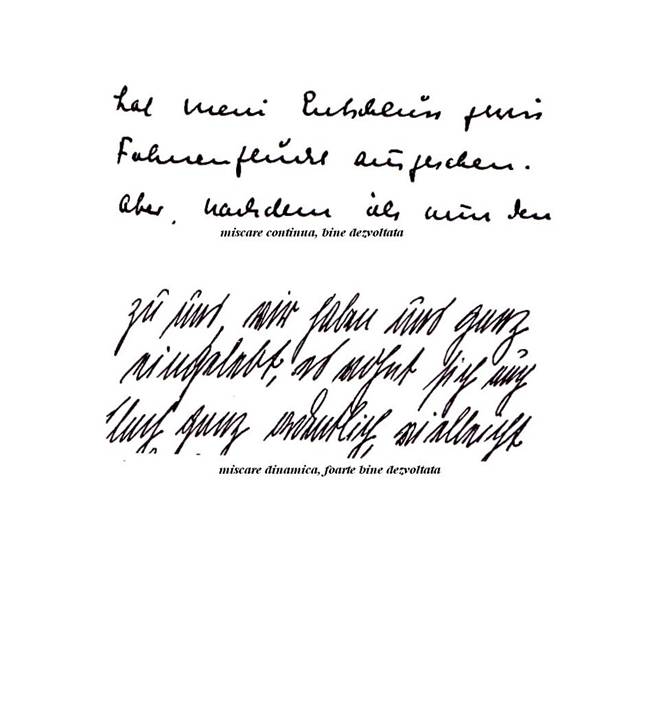 hat mein Entschluss zur
Fahnenflucht ausgesehen.
Aber, nachdem ich nun den
miscare continua, bine dezvoltata
zu uns, wir haben uns ganz
eingelebt, es wohnt sich auch
ganz ordentlich, vielleicht
miscare dinamica, foarte bine dezvoltata